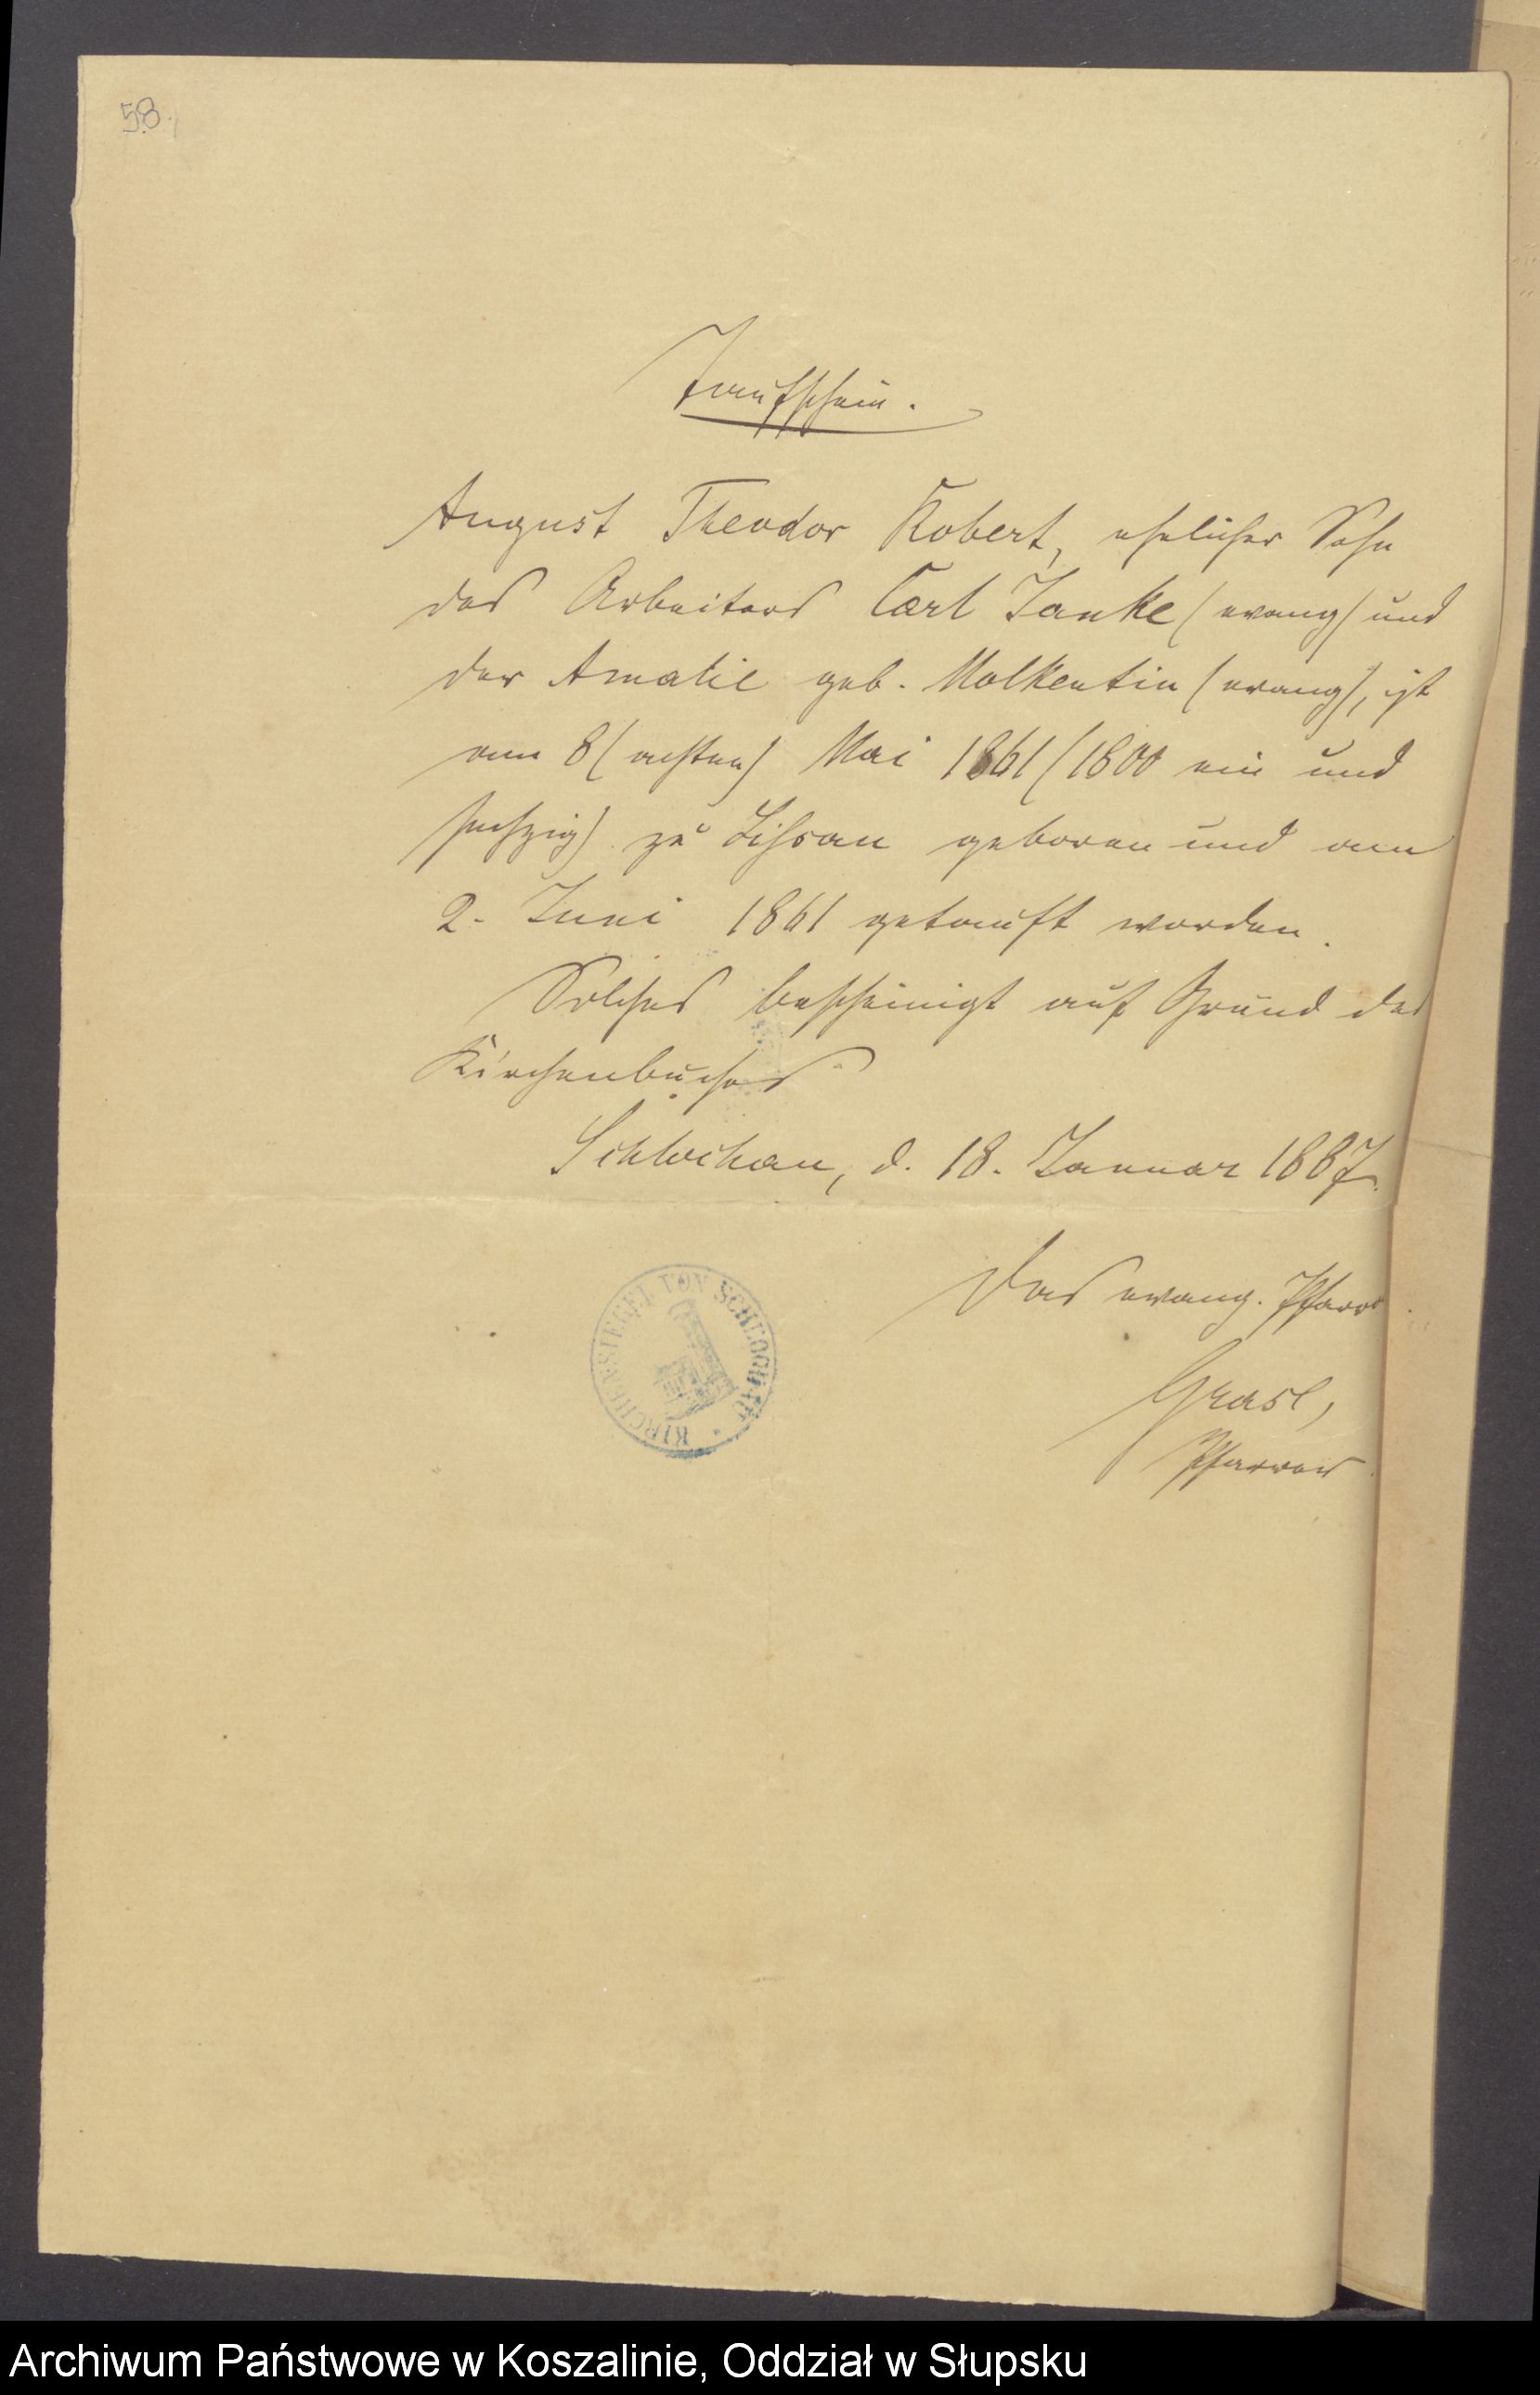 58.
Taufschein.
August Theodor Robert, ehelicher Sohn
des Arbeiters Carl Janke (evang) und
der Amalie geb. Malkentin (evang), ist
am 8 (achten) Mai 1861 (1800 ein und
sechzig) zu geboren und am
2. Juni 1861 getauft worden.
Solches bescheinigt auf Grund des
Kirchenbuches
Schlochau, d. 18. Januar 1887.
Das evang. Pfarr
KIRCHENSIEGEL VON SCHLOCHAU
Pfarrer
Archiwum Państwowe w Koszalinie, Oddział w Słupsku